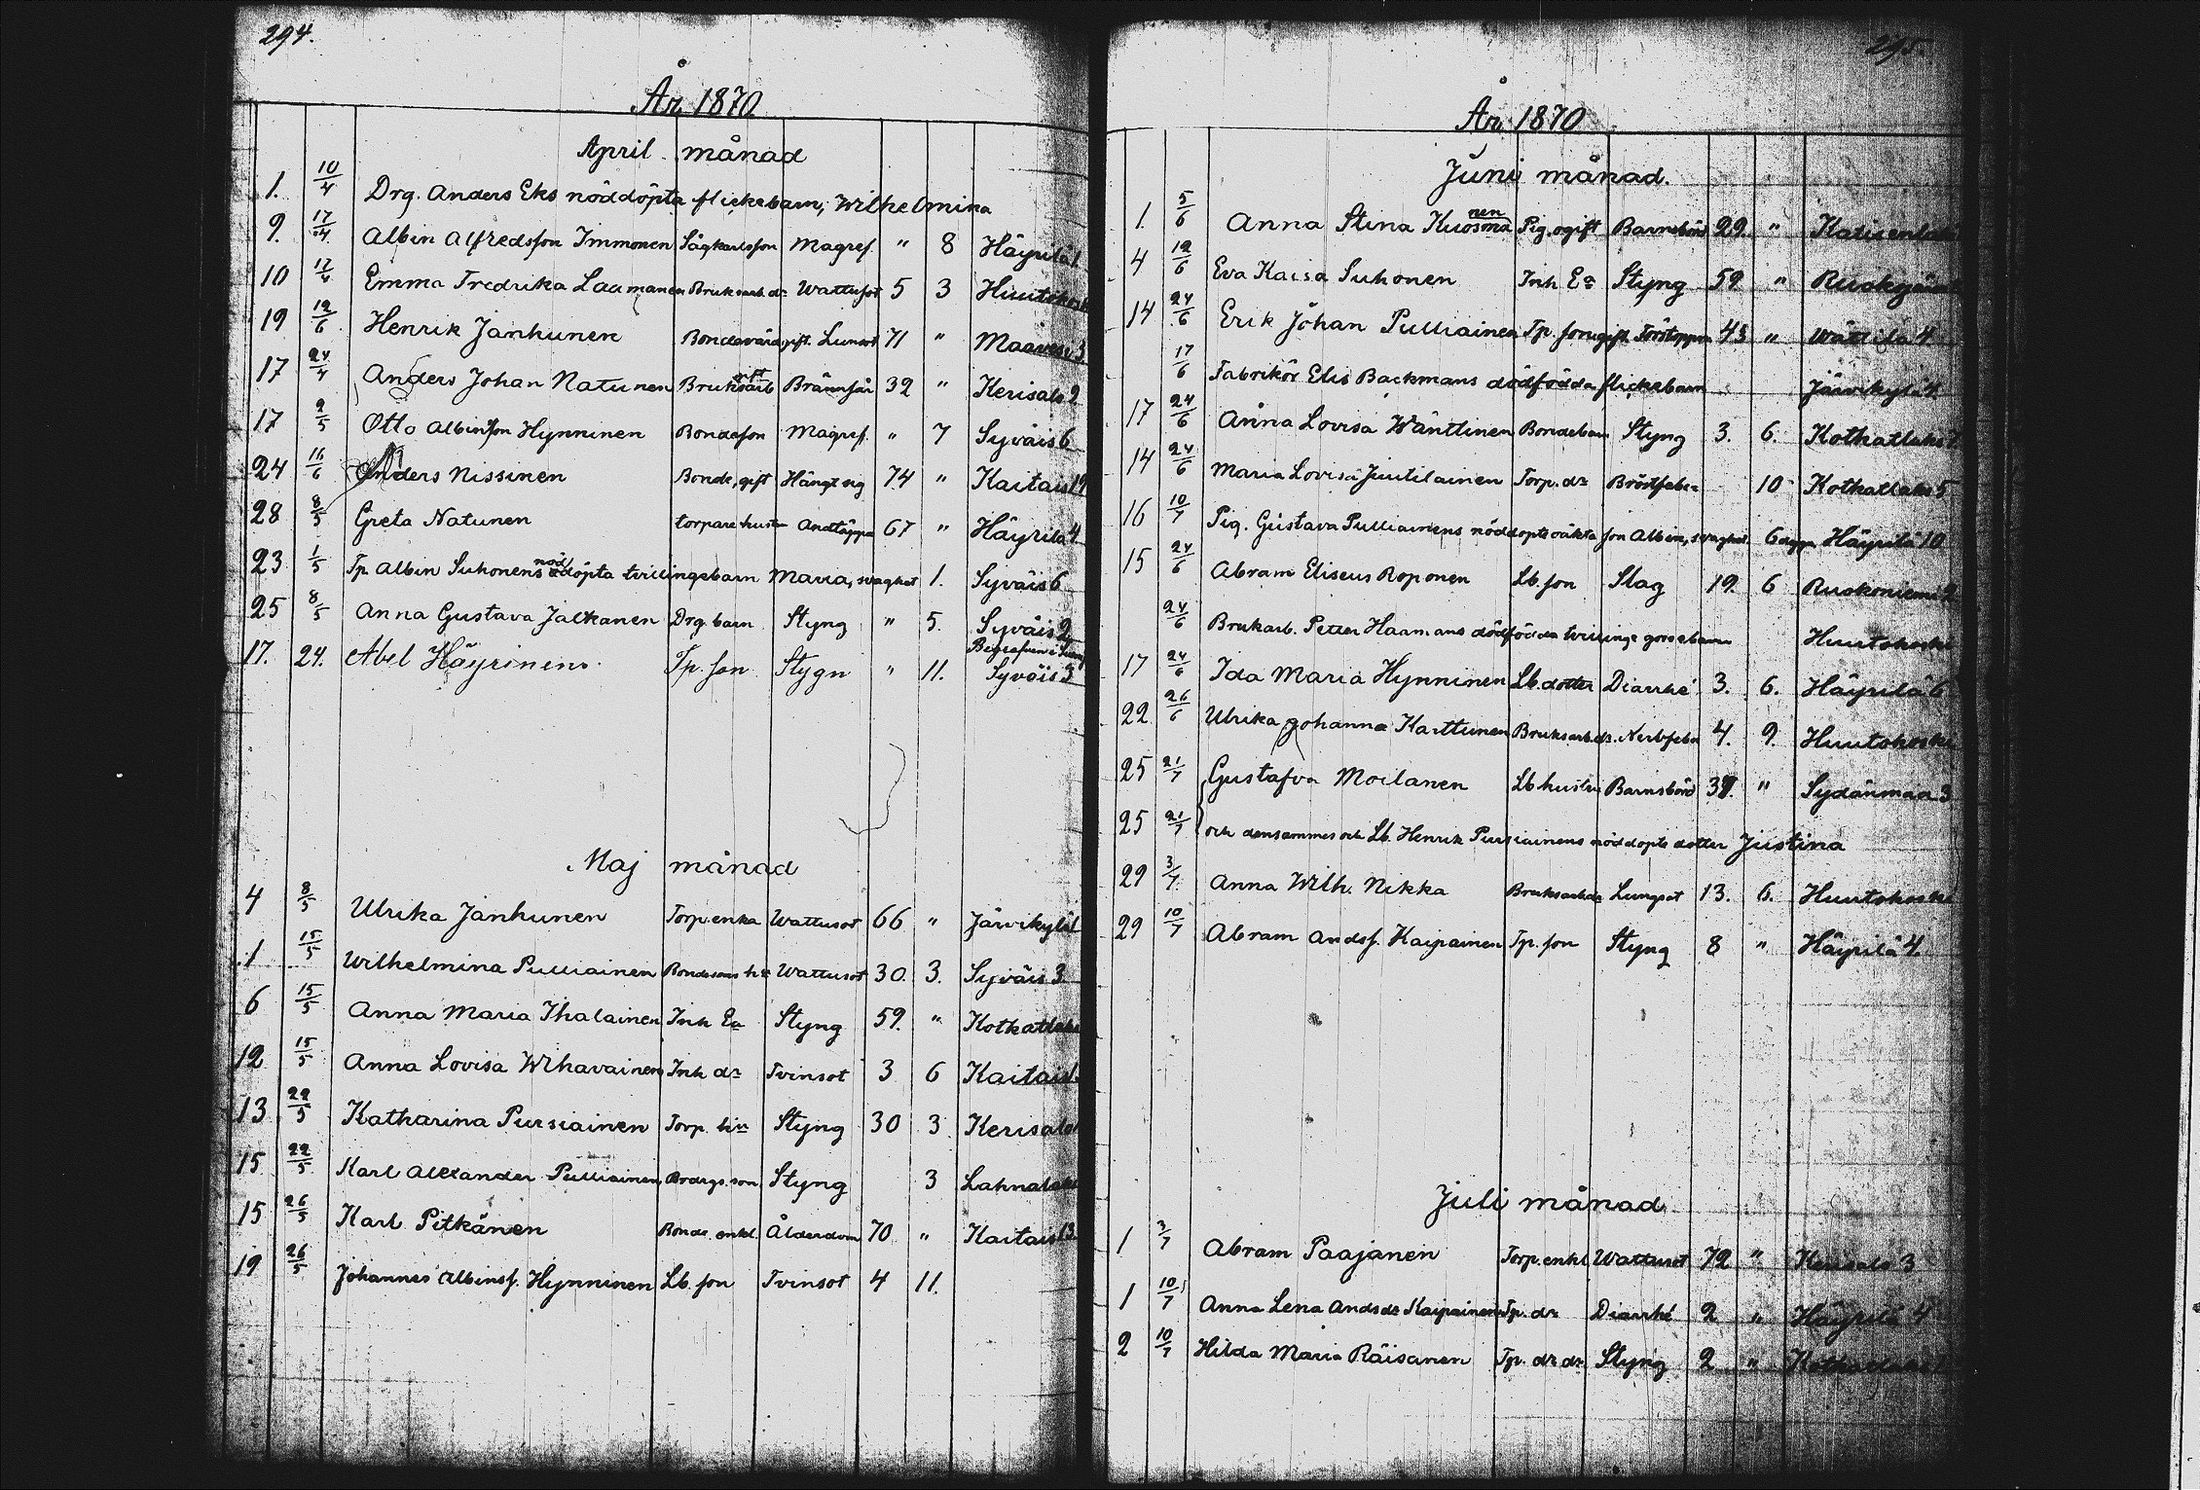 294.
År 1870
April månad
1. 10/4 Drg. Anders Eks nöddöpta flickebarn, Wilhelmina
9. 17/4 Albin Alfredsson Immonen Sågkarlsson Magref. " 8 Häyrilä 1
10 17/4 Emma Fredrika Laamanen Bruksarb. dr Wattusot 5 3 Huutokoski
19 12/6 Henrik Janhunen Bondevärd gift. Lunsot 71 " Maavesi 3
17 24/4 Anders Johan Natunen Bruksarb gift Brännsår 32 " Kerisalo 2
17 2/5 Otto Albinsson Hynninen Bondeson Magref. " 7 Syväis 6
24 16/6 Anders Nissinen Bonde, gift Hängt sig 74 " Kaitais 19
28 8/5 Greta Natunen torpare hustru Andtäppa 67 " Häyrilä 4
23 1/5 Tp. Albin Suhonens nöddöpta tvillingebarn Maria, svaghet 1. Syväis 6
25 8/5 Anna Gustava Jalkanen Drg. barn Styng " 5. Syväis 2
Begrafven i
17. 24. Abel Häyrinen Tp. son Stygn " 11. Syväis 3
Maj månad
4 8/5 Ulrika Janhunen Torp. enka Wattusot 66 " Järvikylä 1
1 15/5 Wilhelmina Pulliainen Bondesons hu Wattusot 30. 3. Syväis 3.
6 15/5 Anna Maria Ihalainen Inh Ea Styng 59. " Kotkatlaks
12 15/5 Anna Lovisa Wihavainen Inh dr Tvinsot 3 6 Kaitais
13 22/5 Katharina Pursiainen Torp. hu Styng 30 3 Kerisalo
15 22/5 Karl Alexander Pulliainen Bodrgs. son Styng 3 Lahnalaks
15 26/5 Karl Pitkänen Bonde enkl. Ålderdom 70 " Kaitais 13.
19 26/5 Johannes Albinss. Hynninen Lb. son Tvinsot 4 11.
295.
År 1870
Juni månad.
1. 5/6 Anna Stina Kuosmanen Pig. ogift Barnsbörd 29. "
4 12/6 Eva Kaisa Suhonen Inh Ea Styng 59 "
14 24/6 Erik Johan Pulliainen Tp. son gift Förstoppn 43 " Wättilä 4
17/6 Fabrikör Elis Backmans dödfödda flickebarn Järvikylä 4.
17 24/6 Anna Lovisa Wänttinen Bondebarn Styng 3. 6. Kotkatlaks 7
14 24/6 Maria Lovisa Juutilainen Torp. dr Bröstfeber 10 Kotkatlaks 5
16 10/7 Pig. Gustava Pulliainens nöddöpte oäkta son Albin, svaghet. 6 dygn Häyrilä 10
15 24/6 Abram Eliseus Roponen Lb. son Slag 19. 6 Ruokoniemi 2
24/6 Brukarb. Petter Haamans dödfödda tvillinge gossebarn Huutokoski
17 24/6 Ida Maria Hynninen Lb. dotter Diarrhé 3. 6. Häyrilä 6
22 26/6 Ulrika Johanna Karttunen Bruksarb. dr. Nervfeber 4. 9. Huutokoski
25 21/7 Gustafva Moilanen Lb hustru Barnsbörd " Sydänmaa 3
25 21/7 och densammes och Lb. Henrik Pursiainens nöddöpte dotter Justina
29 3/7. Anna Wilh. Nikka Bruksarb dr Lungsot 13. 6. Huutokoski
29 10/7 Abram Andss. Kaipainen Tp. son Styng 8 " Häyrilä 4.
Juli månad
1 3/7 Abram Paajanen Torp. enkl Wattusot 72 " Kerisalo 3
1 10/7 Anna Lena Andsdr Kaipainen Tp. dr Diarrhé 2 " Häyrilä 4
2 10/7 Hilda Maria Räisänen Tp. dr dr Styng 2 " Kotkatlaks